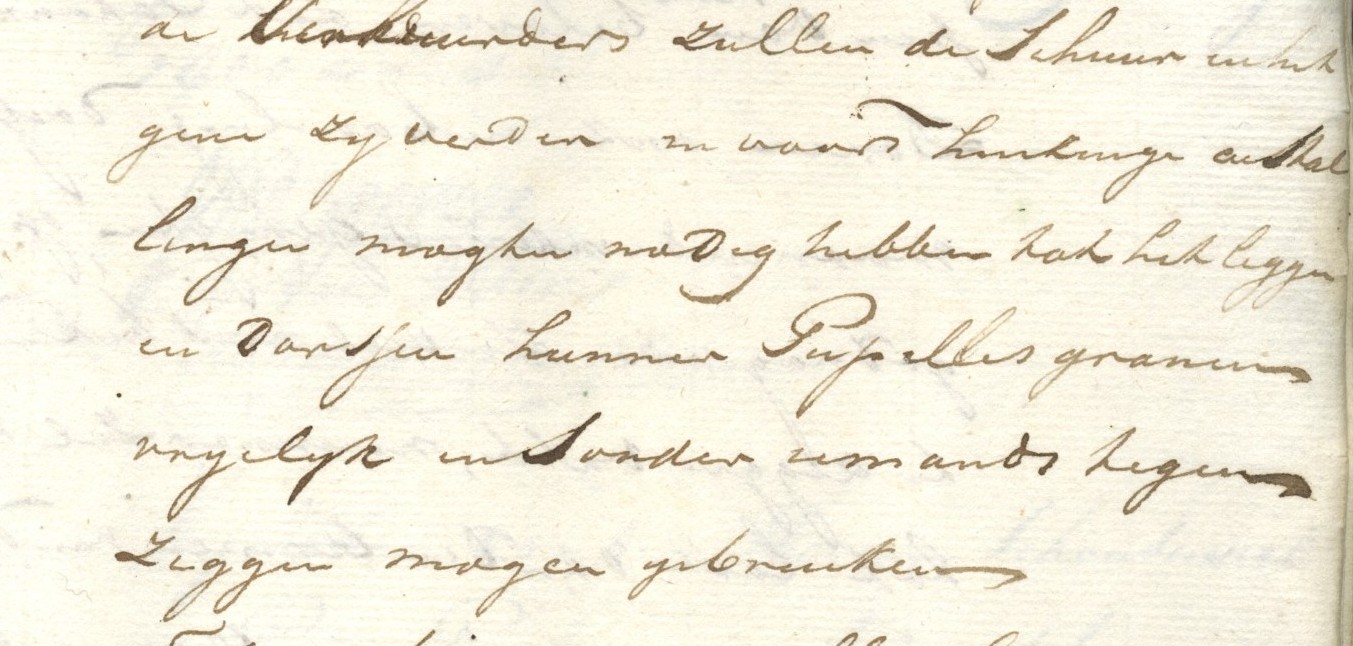 de Verhuurders zullen de Schuur en het
gene zy verder in voors huckinge en stal
lingen mogten nodig hebben tot het leggen
en Dorssen hunner Pupilles granen
vryelyk en Sonder iemands tegen
zeggen mogen gebruiken